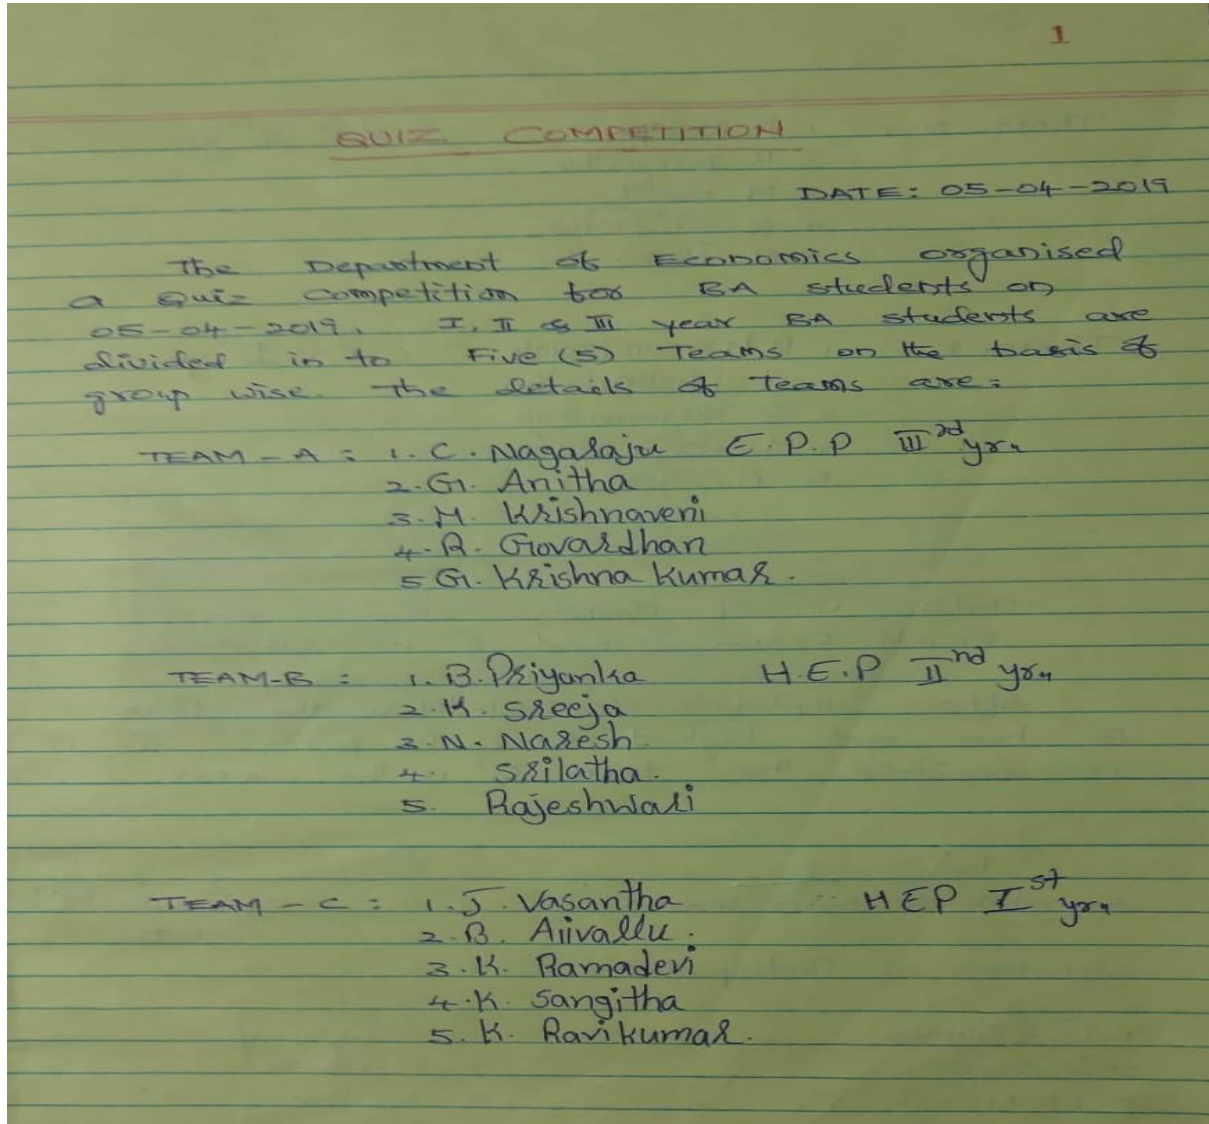 1
QUIZ COMPETITION
DATE: 05-04-2019
The Department of Economics organised
a Quiz Competition for BA students on
05-04-2019. I, II & III year BA students are
divided in to Five (5) Teams on the basis of
group wise. The details of Teams are:
TEAM - A : 1. C. Nagaraju E.P.P III rd yr.
2. G. Anitha
3. M. Krishnaveni
4. R. Govardhan
5 G. Krishna Kumar.
TEAM-B : 1. B. Priyanka H.E.P II nd yr.
2. K. Sreeja
3. N. Naresh.
4. Srilatha.
5. Rajeshwari
TEAM - C : 1. J. Vasantha HEP I st yr.
2. B. Aiivallu.
3. K. Ramadevi
4. K. Sangitha
5. K. Ravi Kumar.